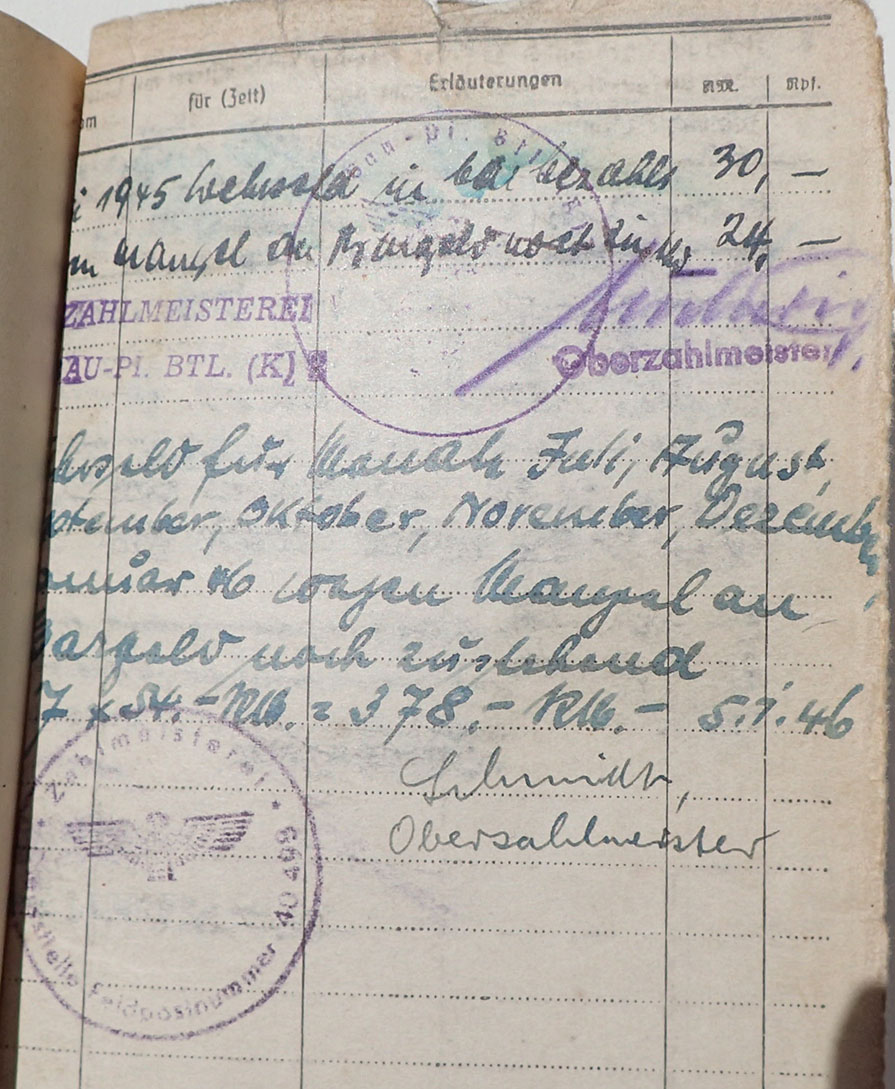 für (Zeit) Erläuterungen RM. Rpf.
1945 Wehrsold in bar bezahlt 30,—
Mangel an Bargeld noch zust. 24,—
ZAHLMEISTEREI
AU-PI. BTL. (K)
Oberzahlmeister
für Monate Juli, August,
ptember, Oktober, November, Dezember,
anuar 46 wegen Mangel an
Bargeld noch zustehend
7 x 54.- RM. = 378,- RM.- 5.1.46
Schmidt,
Oberzahlmeister
Zahlmeisterei
Feldpostnummer 40499